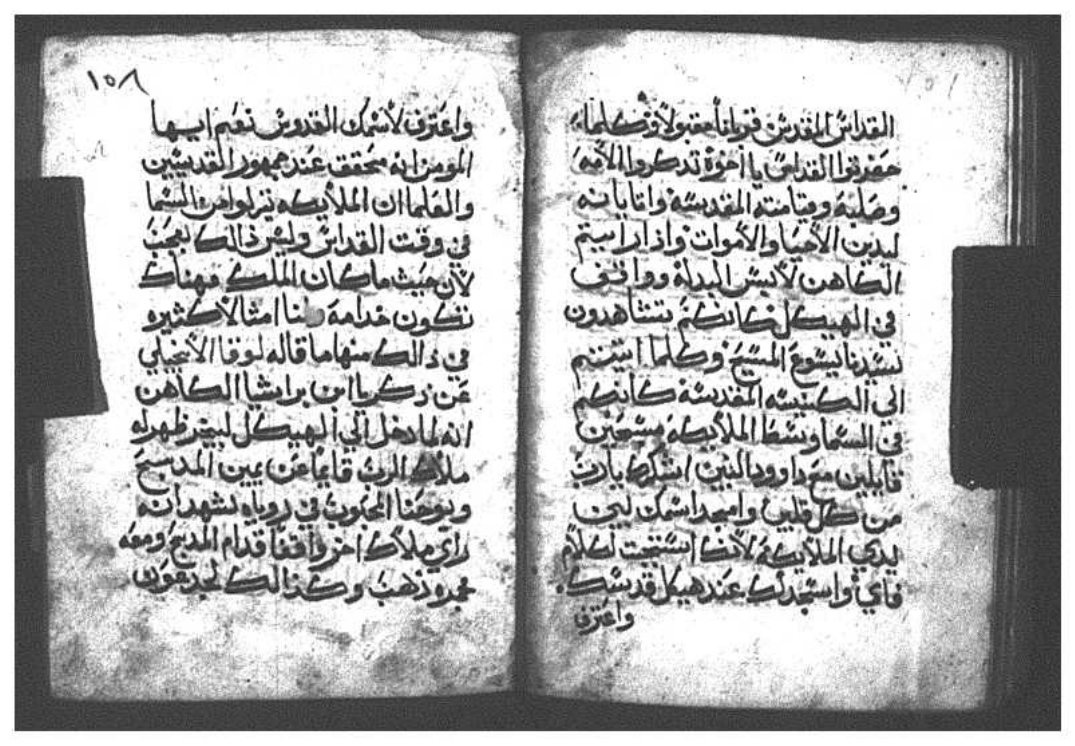 القداس المقدس قربانا مقبولا وكلما
حضرتوا القداس يا اخوة تدكروا الامه
وصلبه وقيامته المقدسه واتايانه
ليدين الاحيا والاموات واذا رايتم
الكاهن لابس البدلة وواقف
في الهيكل فكانكم تشاهدون
سيدنا يسوع المسيح وكلما اتيتم
الي الكنيسه المقدسة كانكم
في السما وسط الملايكه مسبحين
قايلين مع داوود النبي اشكرك يارب
من كل قلبي وامجد اسمك
يدي الملايكة لانك استجبت لكلام
فاي واسجد لك عند هيكل قدسك
واعترف
١٥٨
واعترف لاسمك القدوس نعم ايها
المومن انه محقق عند جمهور القديسين
والعلما ان الملايكه تنزلوا من السما
في وقت القداس وليس ذالك بعجب
لان حيث ما كان الملك فهناك
تكون خدامه ولنا امثالا كثيره
في ذالك منها ما قاله لوقا الانجيلي
عن زكريا ابن براشيا الكاهن
انه لما دخل الي الهيكل ليبخر ظهر له
ملاك الرب قايما عن يمين المدبح
ويوحنا الحبوب في روياه يشهد انه
راي ملاك اخر واقفا قدام المدبح ومعه
مجمره ذهب وكذالك